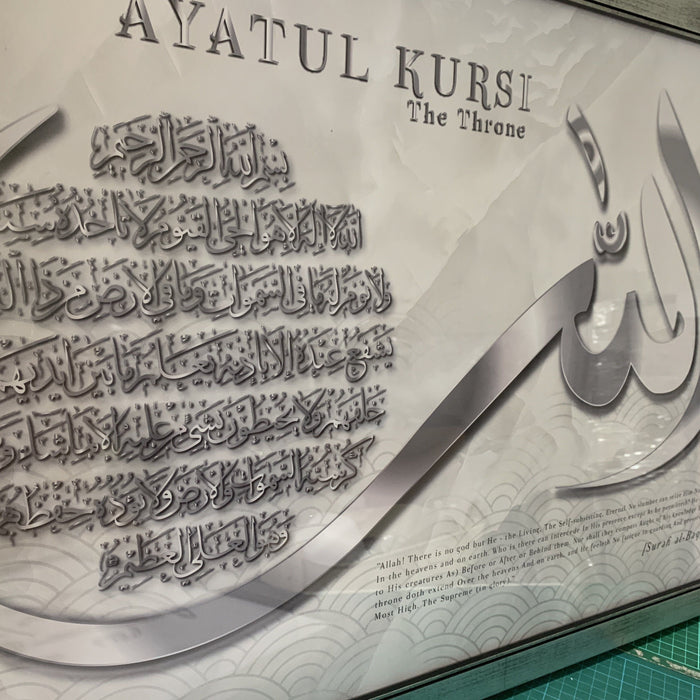 AYATUL KURSI
The Throne
بِسْمِ اللَّهِ الرَّحْمَٰنِ الرَّحِيمِ
اللَّهُ لَا إِلَٰهَ إِلَّا هُوَ الْحَيُّ الْقَيُّومُ لَا تَأْخُذُهُ سِنَةٌ
وَلَا نَوْمٌ لَهُ مَا فِي السَّمَاوَاتِ وَمَا فِي الْأَرْضِ مَنْ ذَا
يَشْفَعُ عِنْدَهُ إِلَّا بِإِذْنِهِ يَعْلَمُ مَا بَيْنَ أَيْدِيهِمْ
خَلْفَهُمْ وَلَا يُحِيطُونَ بِشَيْءٍ مِنْ عِلْمِهِ إِلَّا بِمَا شَاءَ
كُرْسِيُّهُ السَّمَاوَاتِ وَالْأَرْضَ وَلَا يَئُودُهُ حِفْظُهُمَا
وَهُوَ الْعَلِيُّ الْعَظِيمُ
الله
"Allah! There is no god but He - the Living, The Self-subsisting, Eternal. No slumber can seize Him
In the heavens and on earth. Who is there can intercede In His presence except As he permitteth?
to His creatures As) Before or After or Behind them. Nor shall they compass Aught of his knowledge
throne doth extend Over the heavens And on earth, and He feeleth No fatigue in guarding And
Most High, The Supreme (in glory)."
[Surah al-Baq